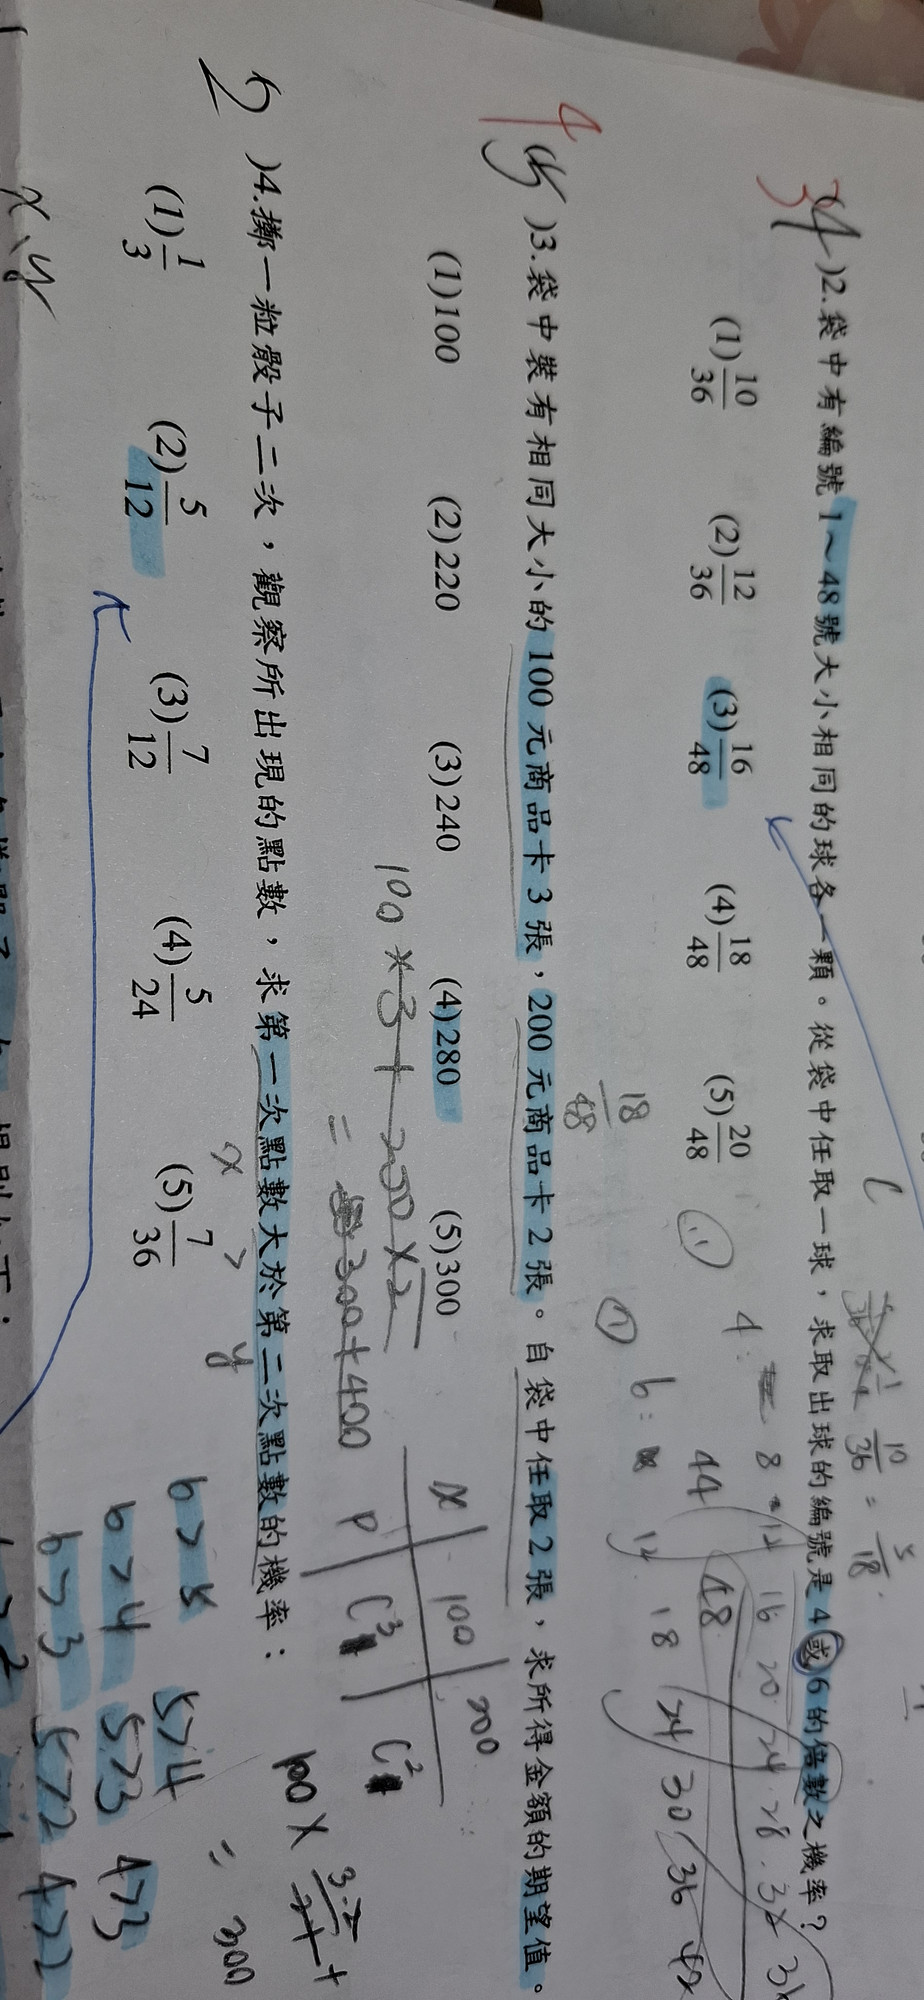 34 )2.袋中有編號1～48號大小相同的球各一顆。從袋中任取一球，求取出球的編號是4或6的倍數之機率？
(1)10/36 (2)12/36 (3)16/48 (4)18/48 (5)20/48
10/36 = 5/18
4: 8 12 16 20 24 28 32 36
44 48
6: 12 18 24 30 36 42
18/48
4 )3.袋中裝有相同大小的100元商品卡3張，200元商品卡2張。自袋中任取2張，求所得金額的期望值。
(1)100 (2)220 (3)240 (4)280 (5)300
100×3+200×2
=300+400
x 100 200
P C3 C2
100×
= 300
2 )4.擲一粒骰子二次，觀察所出現的點數，求第一次點數大於第二次點數的機率：
x > y
(1)1/3 (2)5/12 (3)7/12 (4)5/24 (5)7/36
6>5 5>4
6>4 5>3 4>3
6>3 5>2 4>2
x、y